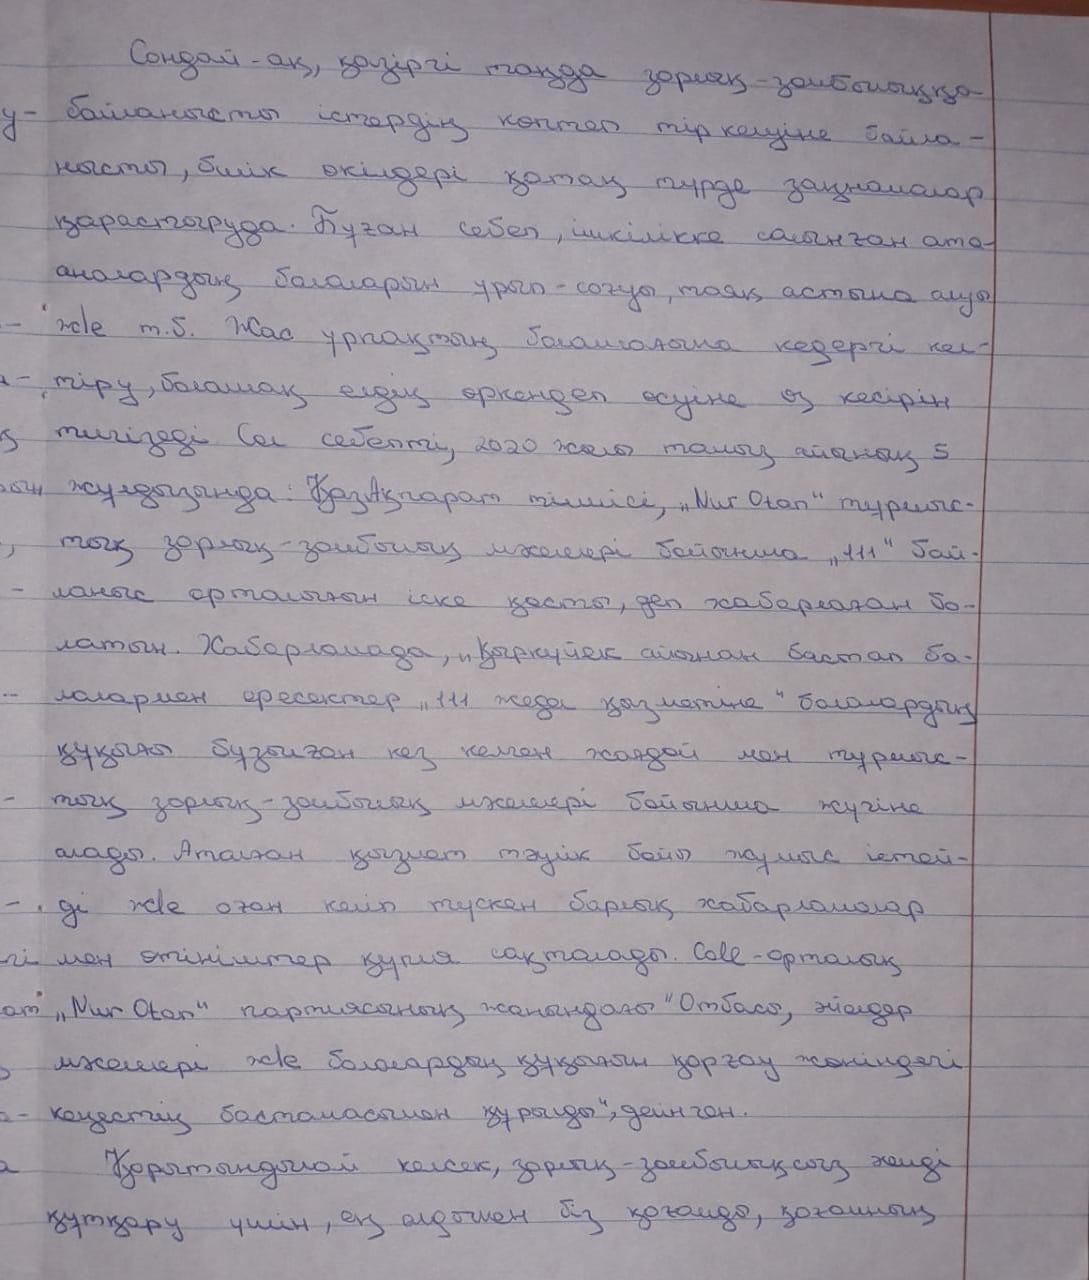 Сондай-ақ, қазіргі таңда зорлық-зомбылыққа
у- байланысты істердің көптеп тіркелуіне байла-
нысты, билік өкілдері қатаң түрде заңнамалар
қарастыруда. Бұған себеп, ішкілікке салынған ата-
аналардың балаларын ұрып-соғуы, таяқ астына алуы
- ж/е т.б. Жас ұрпақтың болашағына кедергі кел-
- тіру, болашақ елдің өркендеп өсуіне өз кесірін
тигізеді Сол себепті, 2020 жылы тамыз айының 5
жұлдызында: ҚазАқпарат тілшісі, „Nur Otan" тұрмыс-
, тық зорлық-зомбылық мәселелері бойынша „111" бай-
- ланыс орталығын іске қосты, деп хабарлаған бо-
латын. Хабарламада, „Қыркүйек айынан бастап ба-
- лалармен ересектер „111 жедел қызметіне" балалардың
құқығы бұзылған кез келген жағдай мен тұрмыс-
- тық зорлық-зомбылық мәселелері бойынша жүгіне
алады. Аталған қызмет тәулік бойы жұмыс істей-
- ді ж/е оған келіп түскен барлық хабарламалар
гі мен өтініштер құпия сақталады. Call-орталық
ат „Nur Otan" партиясының жанындағы "Отбасы, әйелдер
мәселелері ж/е балалардың құқығын қорғау жөніндегі
- кеңестің бастамасымен құрылды", дейінген.
Қорытындылай келсек, зорлық-зомбылықсыз желді
құтқару үшін, ең алдымен біз қоғамды, қоғамның